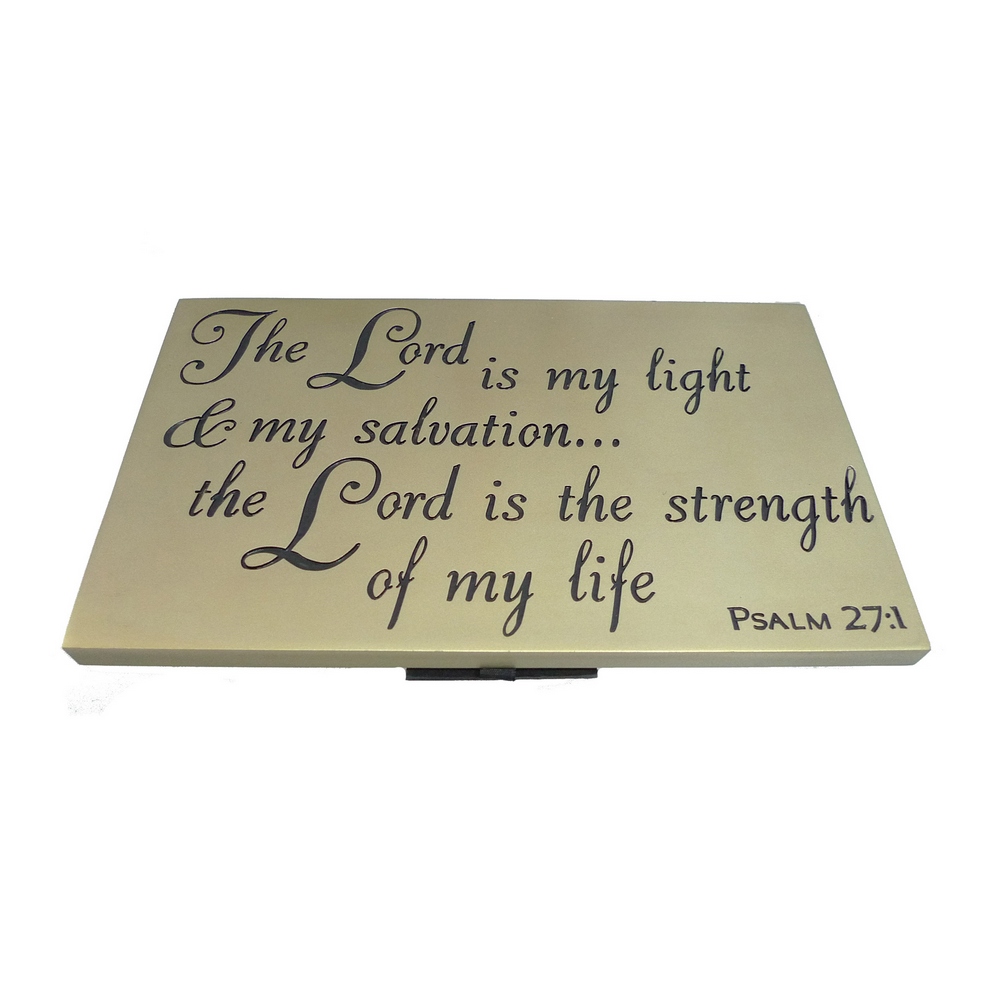 The Lord is my light
& my salvation...
the Lord is the strength
of my life
PSALM 27:1